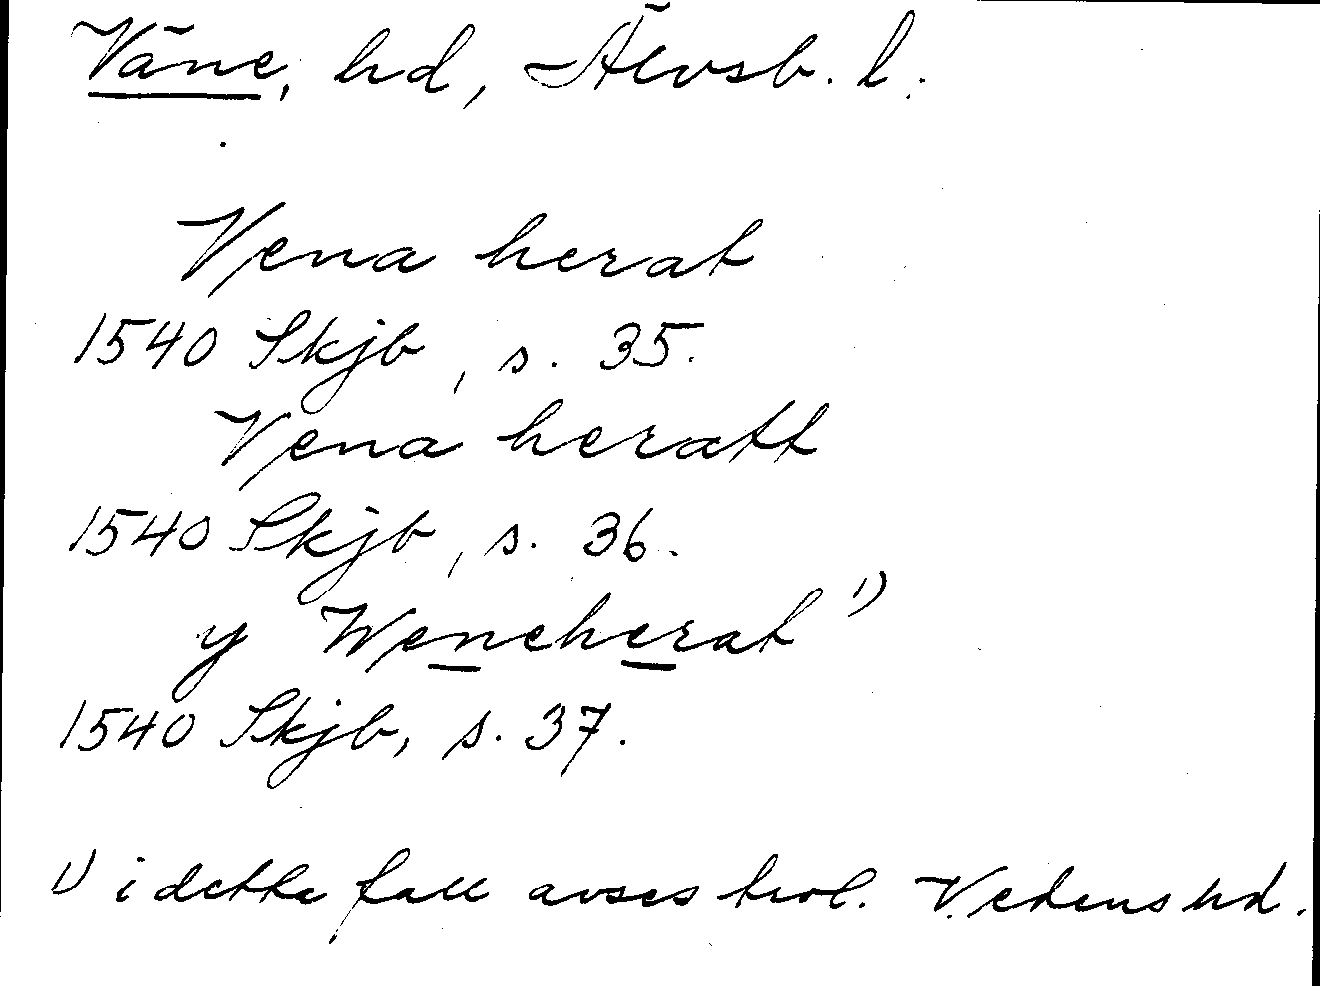 Väne, hd, Älvsb. l.
Vena herat
1540 Skjb, s. 35.
Vena heratt
1540 Skjb, s. 36.
y Weneherat 1)
1540 Skjb, s. 37.
1) i detta fall avses trol. Vedens hd.